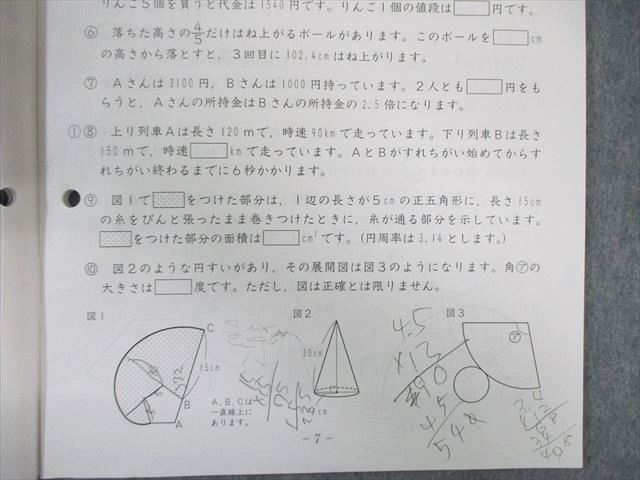 りんご5個を買うと代金は1540円です。りんご1個の値段は□円です。
⑥ 落ちた高さの4/5だけはね上がるボールがあります。このボールを□cm
の高さから落とすと，3回目に102.4cmはね上がります。
⑦ Aさんは3100円，Bさんは1000円持っています。2人とも□円をも
らうと，Aさんの所持金はBさんの所持金の2.5倍になります。
①⑧ 上り列車Aは長さ120mで，時速90kmで走っています。下り列車Bは長さ
150mで，時速□kmで走っています。AとBがすれちがい始めてからす
れちがい終わるまでに6秒かかります。
⑨ 図1で□をつけた部分は，1辺の長さが5cmの正五角形に，長さ15cm
の糸をぴんと張ったまま巻きつけたときに，糸が通る部分を示しています。
□をつけた部分の面積は□cm²です。(円周率は3.14とします。)
⑩ 図2のような円すいがあり，その展開図は図3のようになります。角㋐の
大きさは□度です。ただし，図は正確とは限りません。
図1
C
15cm
72
B
A
A，B，Cは
一直線上に
あります。
図2
30cm
cm
図3
㋐
4.5
×12
90
45
548
-7-